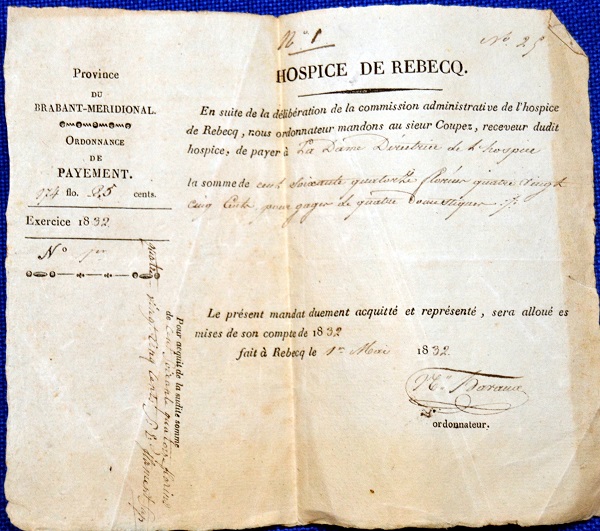 N° 1
N° 25
Province
DU
BRABANT-MERIDIONAL.
ORDONNANCE
DE
PAYEMENT.
174 flo. 85 cents.
Exercice 1832
N° 1er
HOSPICE DE REBECQ.
En suite de la délibération de la commission administrative de l'hospice
de Rebecq, nous ordonnateur mandons au sieur Coupez, receveur dudit
hospice, de payer à La Dame Directrice de l'hospice
la somme de cent soixante quatorze florins quatre vingt
cinq cents, pour gages de quatre domestiques
Le présent mandat duement acquitté et représenté, sera alloué es
mises de son compte de 1832
fait à Rebecq le 1er Mai 1832.
ordonnateur.
Pour acquit de la susdite somme
de cent soixante quatorze florins
vingt cinq cents